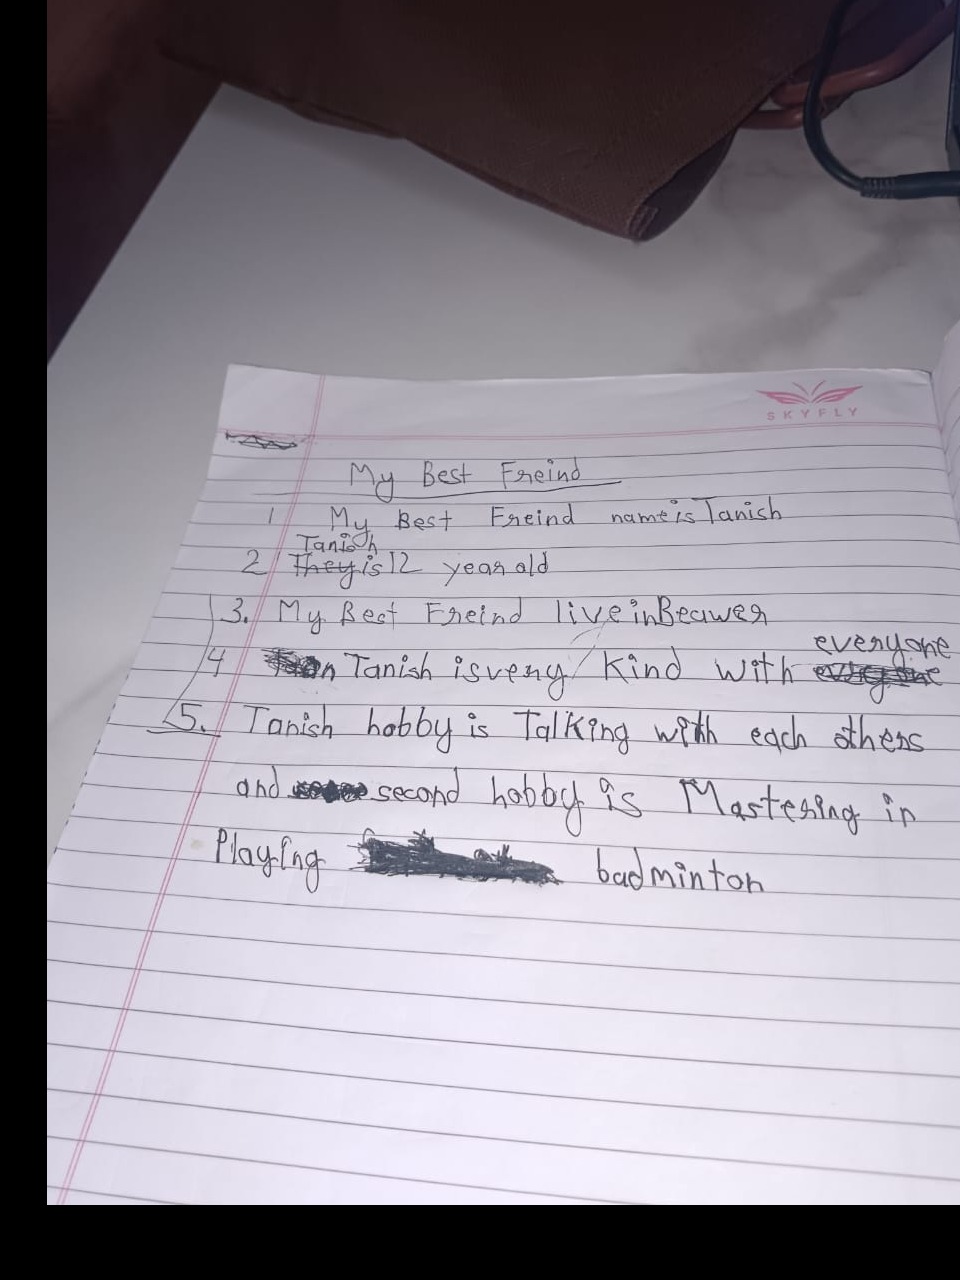 SKYFLY
My Best Freind
1 My Best Freind name is Tanish
Tanish
2 They is 12 year old
3. My Best Freind live in Beawer
everyone
4 Tanish is very Kind with
5. Tanish hobby is Talking with each others
and second hobby is Mastering in
Playing badminton